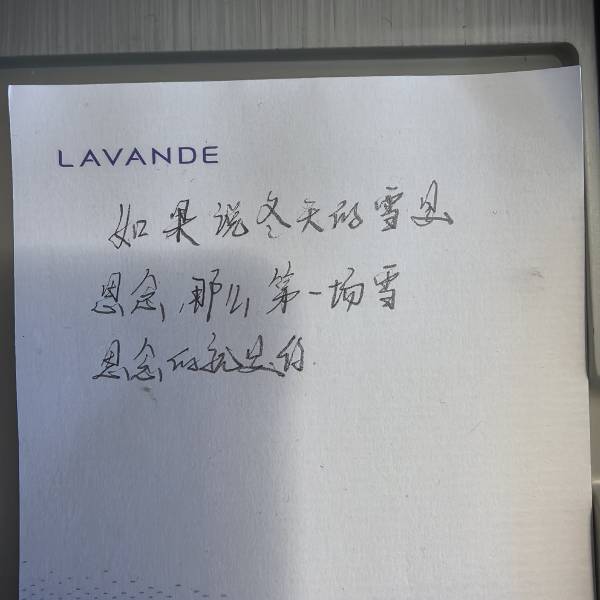 LAVANDE
如果说冬天的雪是
思念,那么第一场雪
思念的就是你